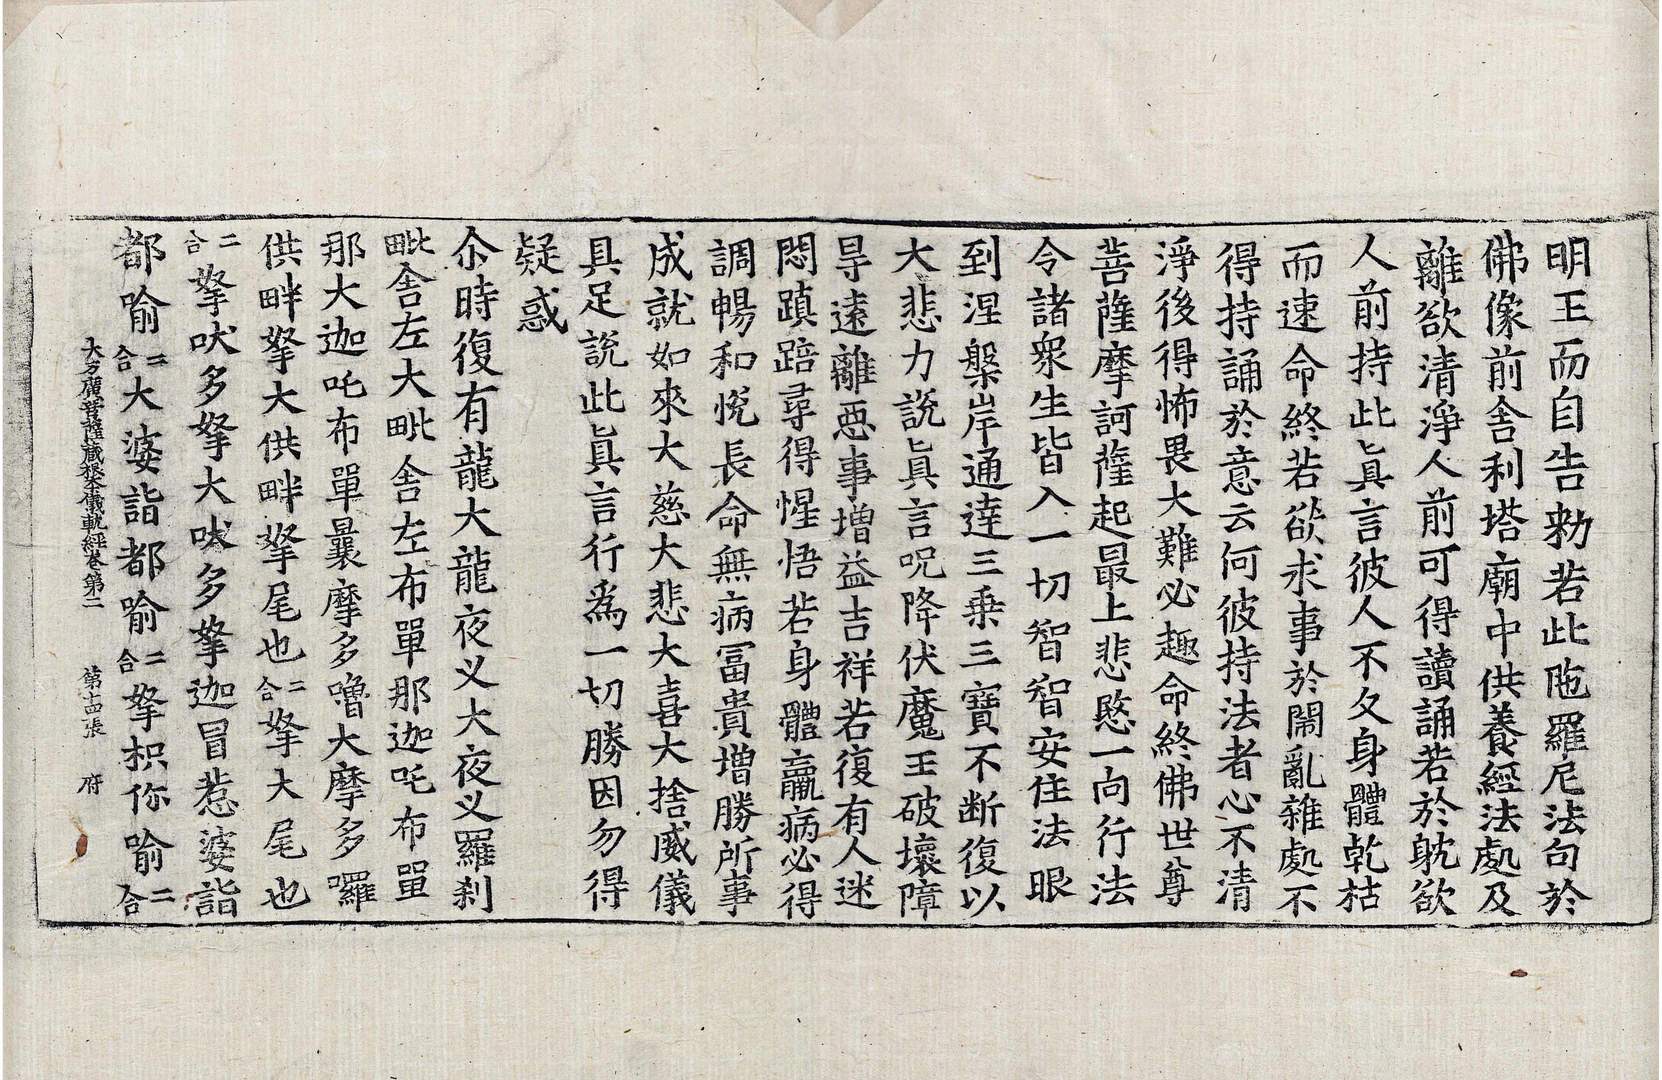 明王而自告勑若此陁羅尼法句於
佛像前舍利塔廟中供養經法處及
離欲清淨人前可得讀誦若於躭欲
人前持此真言彼人不久身體乾枯
而速命終若欲求事於鬧亂雜處不
得持誦於意云何彼持法者心不清
淨後得怖畏大難必趣命終佛世尊
菩薩摩訶薩起最上悲愍一向行法
令諸衆生皆入一切智智安住法眼
到涅槃岸通達三乗三寶不断復以
大悲力說真言呪降伏魔王破壞障
㝵遠離惡事增益吉祥若復有人迷
悶蹎踣尋得惺悟若身體羸病必得
調暢和悅長命無病冨貴增勝所事
成就如來大慈大悲大喜大捨威儀
具足說此真言行爲一切勝因勿得
疑惑
尒時復有龍大龍夜义大夜义羅刹
毗舍左大毗舍左布單那迦吒布單
那大迦吒布單曩摩多嚕大摩多囉
供畔拏大供畔拏尾也二合拏大尾也
二合拏吠多拏大吠多拏迦冒惹婆詣
都喻二合大婆詣都喻二合拏枳你喻二合
大方廣菩薩藏根本儀軌經卷第二 第十四張 府